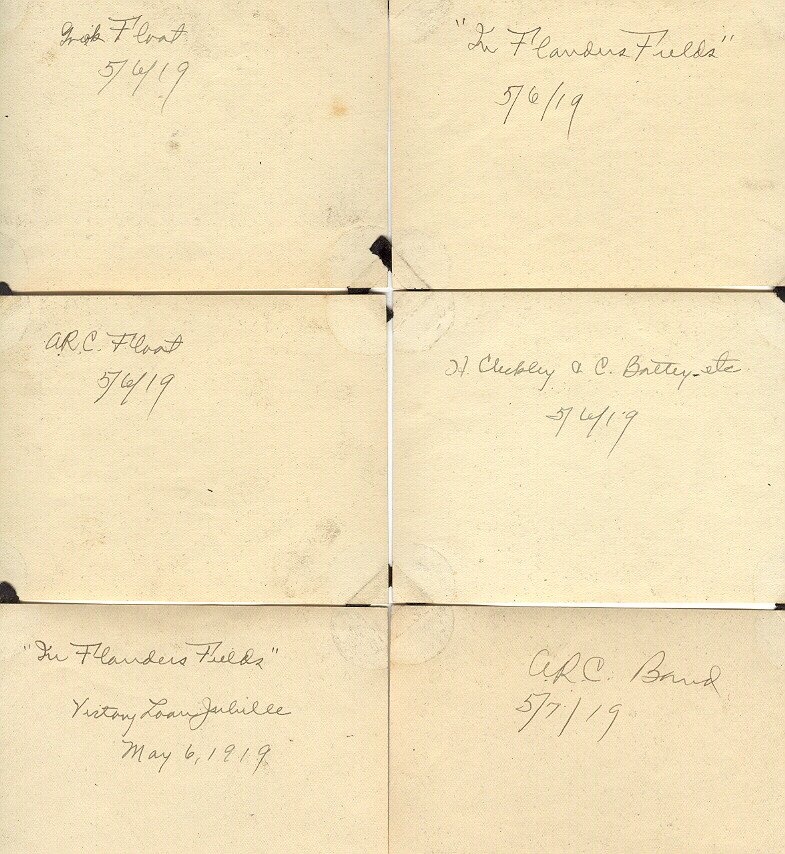 Float
5/6/19
"In Flanders Fields"
5/6/19
A.R.C. Float
5/6/19
H. & C. Battey - etc
5/6/19
"In Flanders Fields"
Victory Loan Jubilee
May 6, 1919
A.R.C. Band
5/7/19